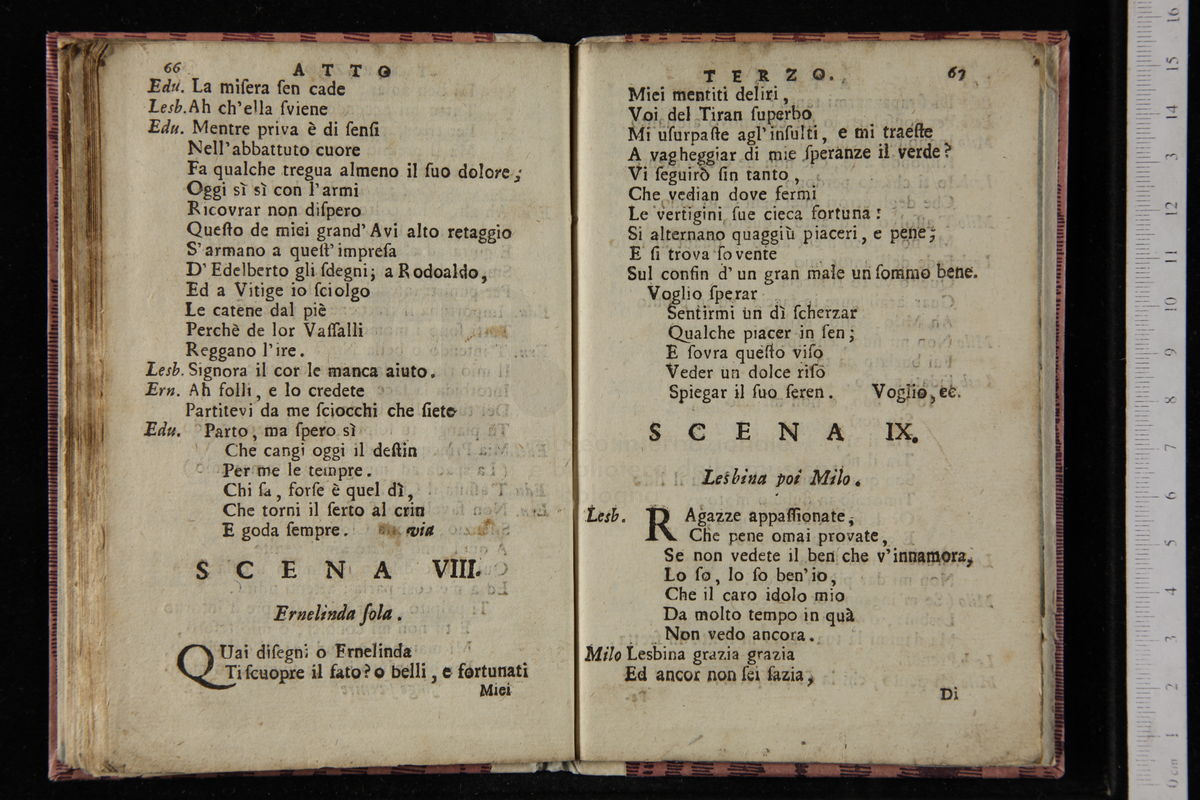 66 ATTO
Edu. La miſera ſen cade
Lesb. Ah ch'ella ſviene
Edu. Mentre priva è di ſenſi
Nell'abbattuto cuore
Fa qualche tregua almeno il ſuo dolore;
Oggi sì sì con l'armi
Ricovrar non diſpero
Queſto de miei grand'Avi alto retaggio
S'armano a queſt'impreſa
D'Edelberto gli ſdegni; a Rodoaldo,
Ed a Vitige io ſciolgo
Le catene dal piè
Perchè de lor Vaſſalli
Reggano l'ire.
Lesb. Signora il cor le manca aiuto.
Ern. Ah folli, e lo credete
Partitevi da me ſciocchi che ſiete
Edu. Parto, ma ſpero sì
Che cangi oggi il deſtin
Per me le tempre.
Chi ſa, forſe è quel dì,
Che torni il ſerto al crin
E goda ſempre. via
SCENA VIII.
Ernelinda ſola.
QUai diſegni o Ernelinda
Ti ſcuopre il fato? o belli, e fortunati
Miei
TERZO. 67
Miei mentiti deliri,
Voi del Tiran ſuperbo
Mi uſurpaſte agl'inſulti, e mi traeſte
A vagheggiar di mie ſperanze il verde?
Vi ſeguirò ſin tanto,
Che vedian dove fermi
Le vertigini ſue cieca fortuna:
Si alternano quaggiù piaceri, e pene;
E ſi trova ſovente
Sul confin d'un gran male un ſommo bene.
Voglio ſperar
Sentirmi un dì ſcherzar
Qualche piacer in ſen;
E ſovra queſto viſo
Veder un dolce riſo
Spiegar il ſuo ſeren. Voglio, ec.
SCENA IX.
Lesbina poi Milo.
Lesb. RAgazze appaſſionate,
Che pene omai provate,
Se non vedete il ben che v'innamora,
Lo ſo, lo ſo ben'io,
Che il caro idolo mio
Da molto tempo in quà
Non vedo ancora.
Milo Lesbina grazia grazia
Ed ancor non ſei ſazia,
Di
0 cm 1 2 3 4 5 6 7 8 9 10 11 12 13 14 15 16